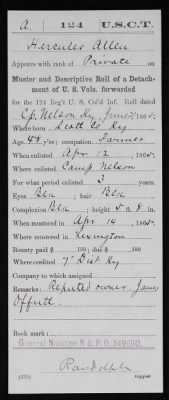 A. | 124 | U.S.C.T.
Hercules Allen
Appears with rank of Private on
Muster and Descriptive Roll of a Detach-
ment of U. S. Vols. forwarded
for the 124 Reg't U. S. Col'd Inf. Roll dated
Cp. Nelson Ky, June, 1865.
Where born Scott Co Ky
Age yrs; occupation Farmer
When enlisted Apr 12, 1865.
Where enlisted Camp Nelson
For what period enlisted 3 years.
Eyes Bla; hair Bla
Complexion Bla; height 5 ft. 8 in.
When mustered in Apr 14, 1865.
Where mustered in Lexington
Bounty paid $ 100; due $ 100
Where credited 7" Dist Ky
Company to which assigned
Remarks: Reputed owner, James
Offutt
Book mark:
General Notation R. & P. D.
Randolph
Copyist.